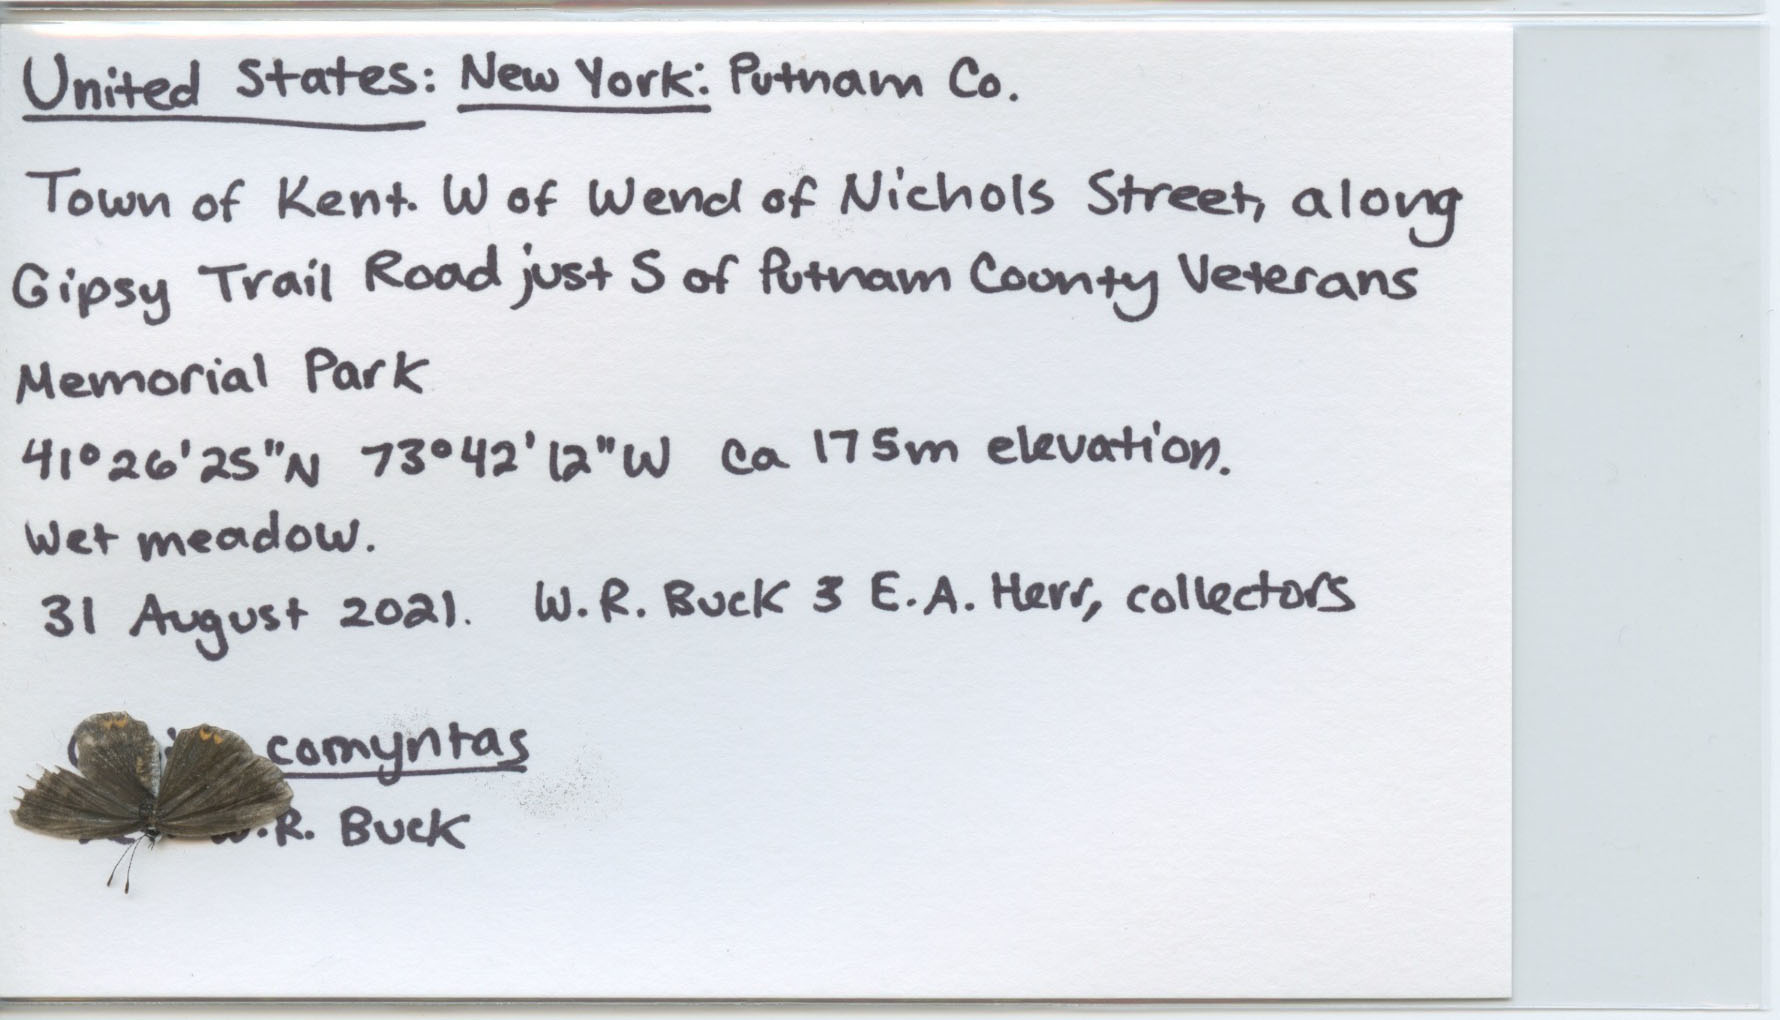 United States: New York: Putnam Co.
Town of Kent. W of W end of Nichols Street, along
Gipsy Trail Road just S of Putnam County Veterans
Memorial Park
41°26'25"N 73°42'12"W ca 175m elevation.
Wet meadow.
31 August 2021. W.R. Buck & E.A. Herr, collectors
comyntas
W.R. Buck